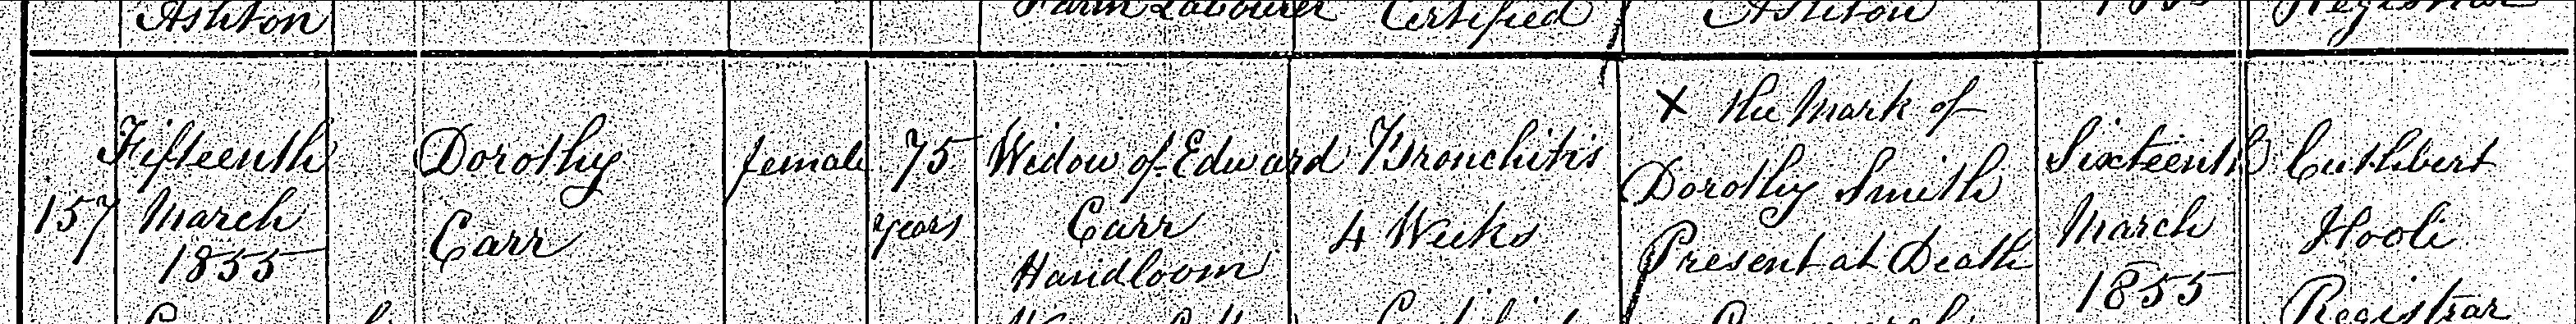 Ashton
Farm Labourer
Certified
Ashton
Registrar
157
Fifteenth
March
1855
Dorothy
Carr
female
75
years
Widow of Edward
Carr
Handloom
Bronchitis
4 Weeks
X The Mark of
Dorothy Smith
Present at Death
Sixteenth
March
1855
Cuthbert
Hoole
Registrar